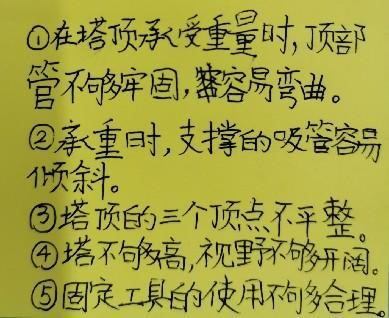 ①在塔顶承受重量时,顶部
管不够牢固,容易弯曲。
②承重时,支撑的吸管容易
倾斜。
③塔顶的三个顶点不平整。
④塔不够高,视野不够开阔。
⑤固定工具的使用不够合理。